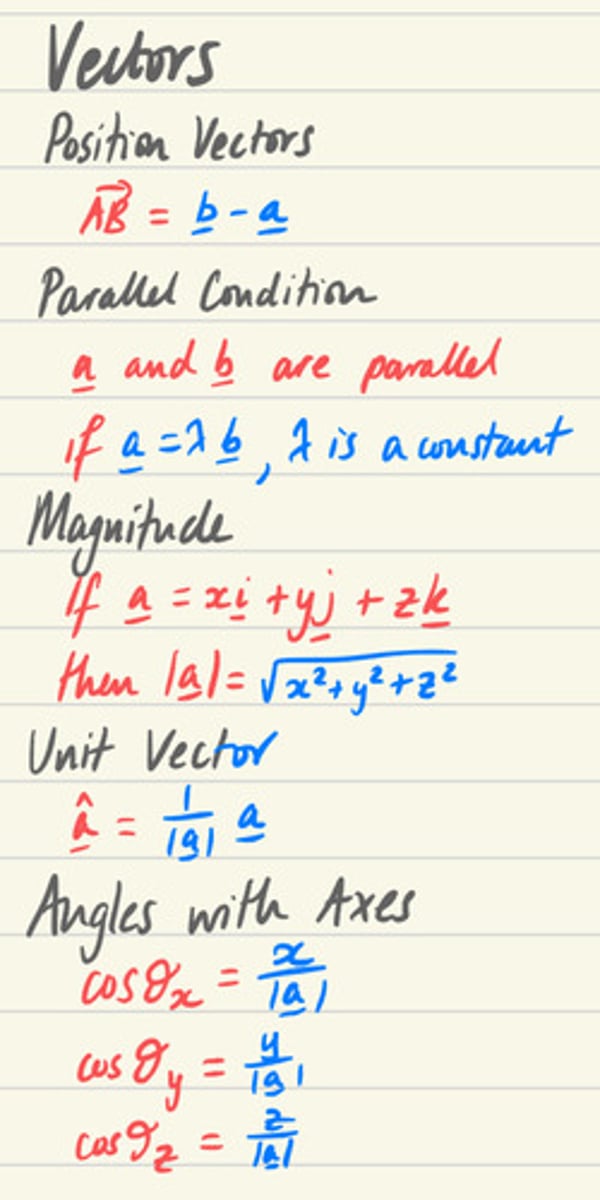 Vectors
Position Vectors
AB⃗ = b - a
Parallel Condition
a and b are parallel
if a = λ b, λ is a constant
Magnitude
If a = xi + yj + zk
then |a| = √(x² + y² + z²)
Unit Vector
â = 1/|a| a
Angles with Axes
cos θx = x/|a|
cos θy = y/|a|
cos θz = z/|a|